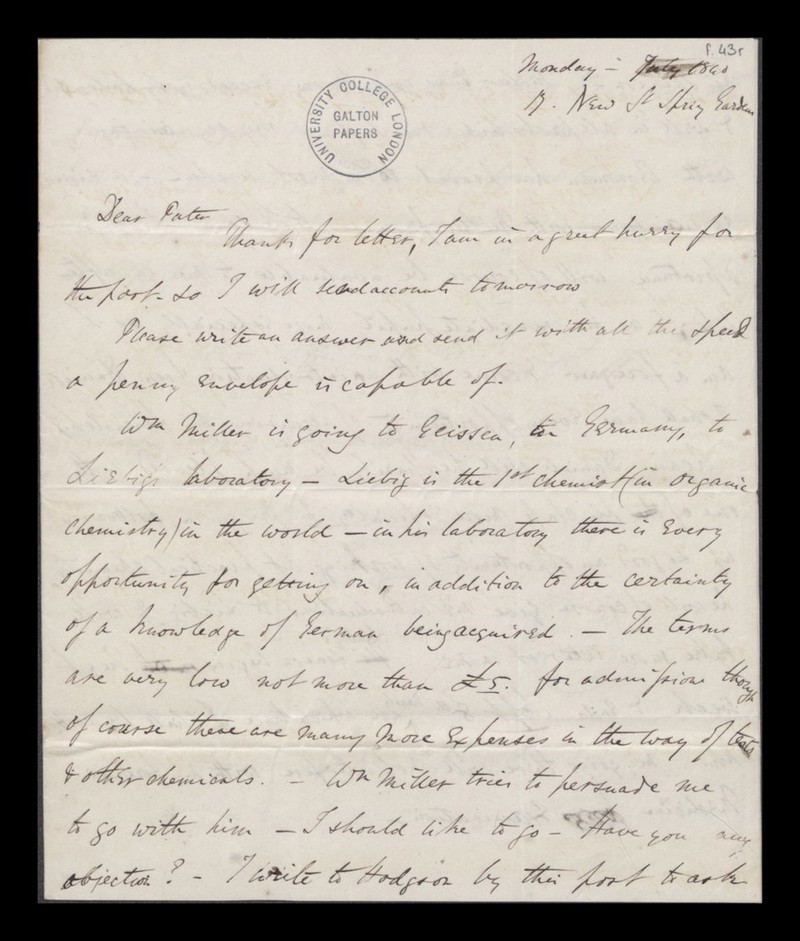 f. 43r
Monday – July 1840
17. New St Spring Gardens
UNIVERSITY COLLEGE LONDON
GALTON
PAPERS
Dear Pater
Thanks for letter, I am in a great hurry for
the post – so I will send accounts tomorrow
Please write an answer and send it with all the speed
a penny envelope is capable of.
Wm Miller is going to Geissen, in Germany, to
Liebig's laboratory – Liebig is the 1st chemist (in organic
chemistry) in the world – in his laboratory there is every
opportunity for getting on, in addition to the certainty
of a knowledge of German being acquired. – The terms
are very low not more than £5. for admission though
of course there are many more expenses in the way of tests
& other chemicals. – Wm Miller tries to persuade me
to go with him – I should like to go – Have you any
objection? – I write to Hodgson by this post to ask